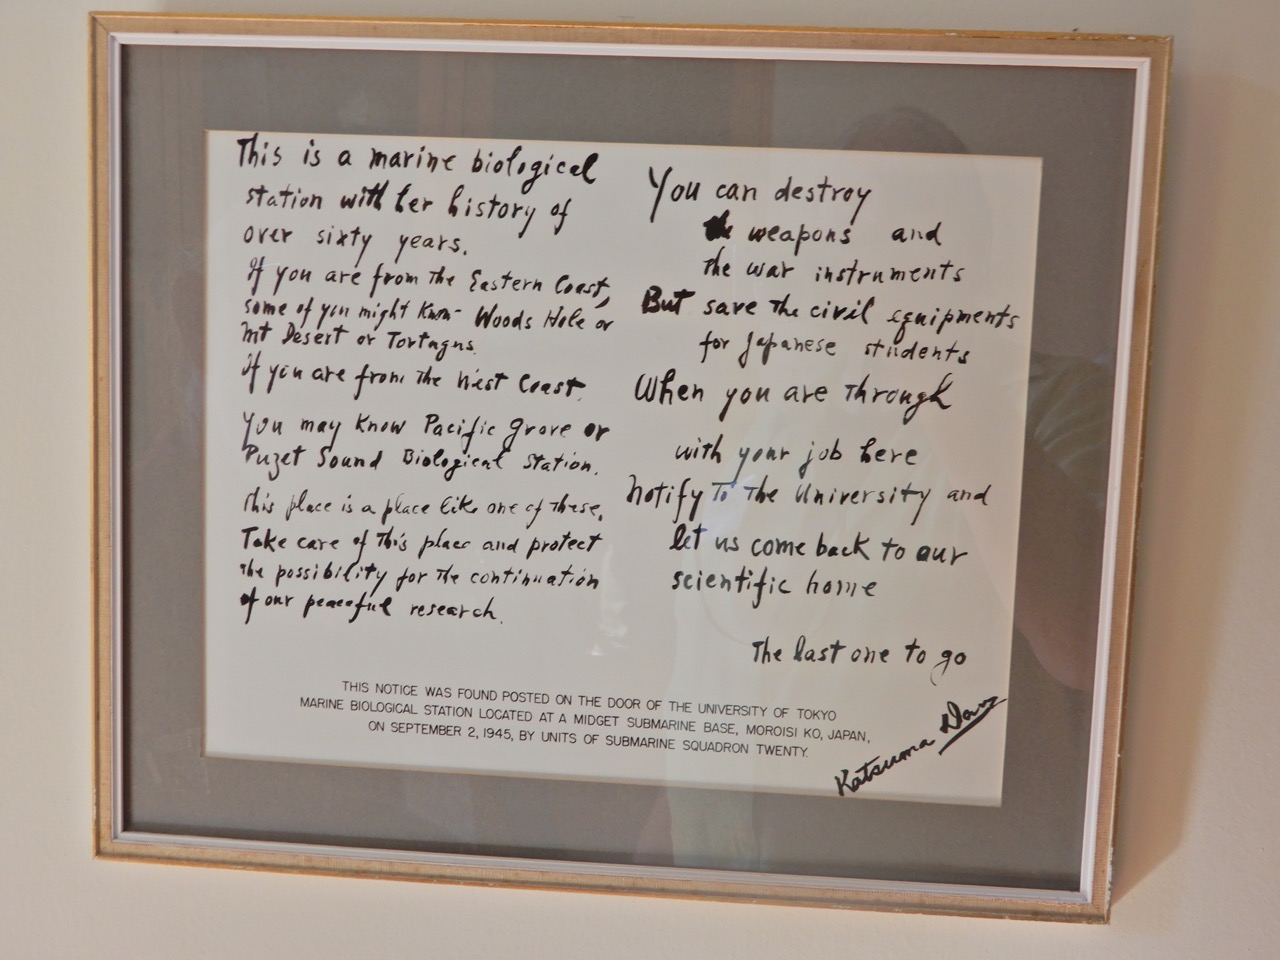 This is a marine biological
station with her history of
over sixty years.
If you are from the Eastern Coast,
some of you might know Woods Hole or
Mt Desert or Tortugas.
If you are from the West Coast.
You may know Pacific Grove or
Puget Sound Biological Station.
This place is a place like one of these.
Take care of this place and protect
the possibility for the continuation
of our peaceful research.
You can destroy
the weapons and
the war instruments
But save the civil equipments
for Japanese students
When you are through
with your job here
Notify to the University and
let us come back to our
scientific home
The last one to go
THIS NOTICE WAS FOUND POSTED ON THE DOOR OF THE UNIVERSITY OF TOKYO
MARINE BIOLOGICAL STATION LOCATED AT A MIDGET SUBMARINE BASE, MOROISI KO, JAPAN,
ON SEPTEMBER 2, 1945, BY UNITS OF SUBMARINE SQUADRON TWENTY.
Katsuma Dan